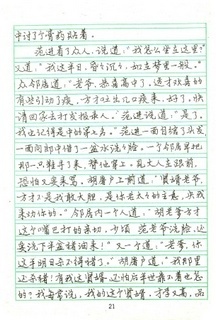 中讨了个膏药贴着。
范进看了众人，说道：“我怎么坐在这里？”
又道：“我这半日，昏昏沉沉，如在梦里一般。”
众邻居道：“老爷，恭喜高中了。适才欢喜的
有些引动了痰，方才吐出几口痰来，好了。快
请回家去打发报录人。”范进说道：“是了。
我也记得是中的第七名。”范进一面自绾了头发，
一面问郎中借了一盆水洗洗脸，一个邻居早把
那一只鞋寻了来，替他穿上。见丈人在跟前，
恐怕又要来骂。胡屠户上前道：“贤婿老爷，
方才不是我敢大胆，是你老太太的主意，央我
来劝你的。”邻居内一个人道：“胡老爹方才
这个嘴巴打的亲切，少顷范老爷洗脸，还
要洗下半盆猪油来！”又一个道：“老爹，你
这手明日杀不得猪了。”胡屠户道：“我那里
还杀猪！有我这贤婿，还怕后半世靠不着也怎
的？我每常说，我的这个贤婿，才学又高，品
21